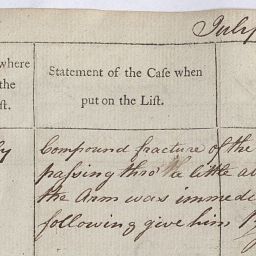 July
where
the
ist.
Statement of the Cafe when
put on the Lift.
Compound fracture of the
passing thro' a little a
the Arm was immed
following give him